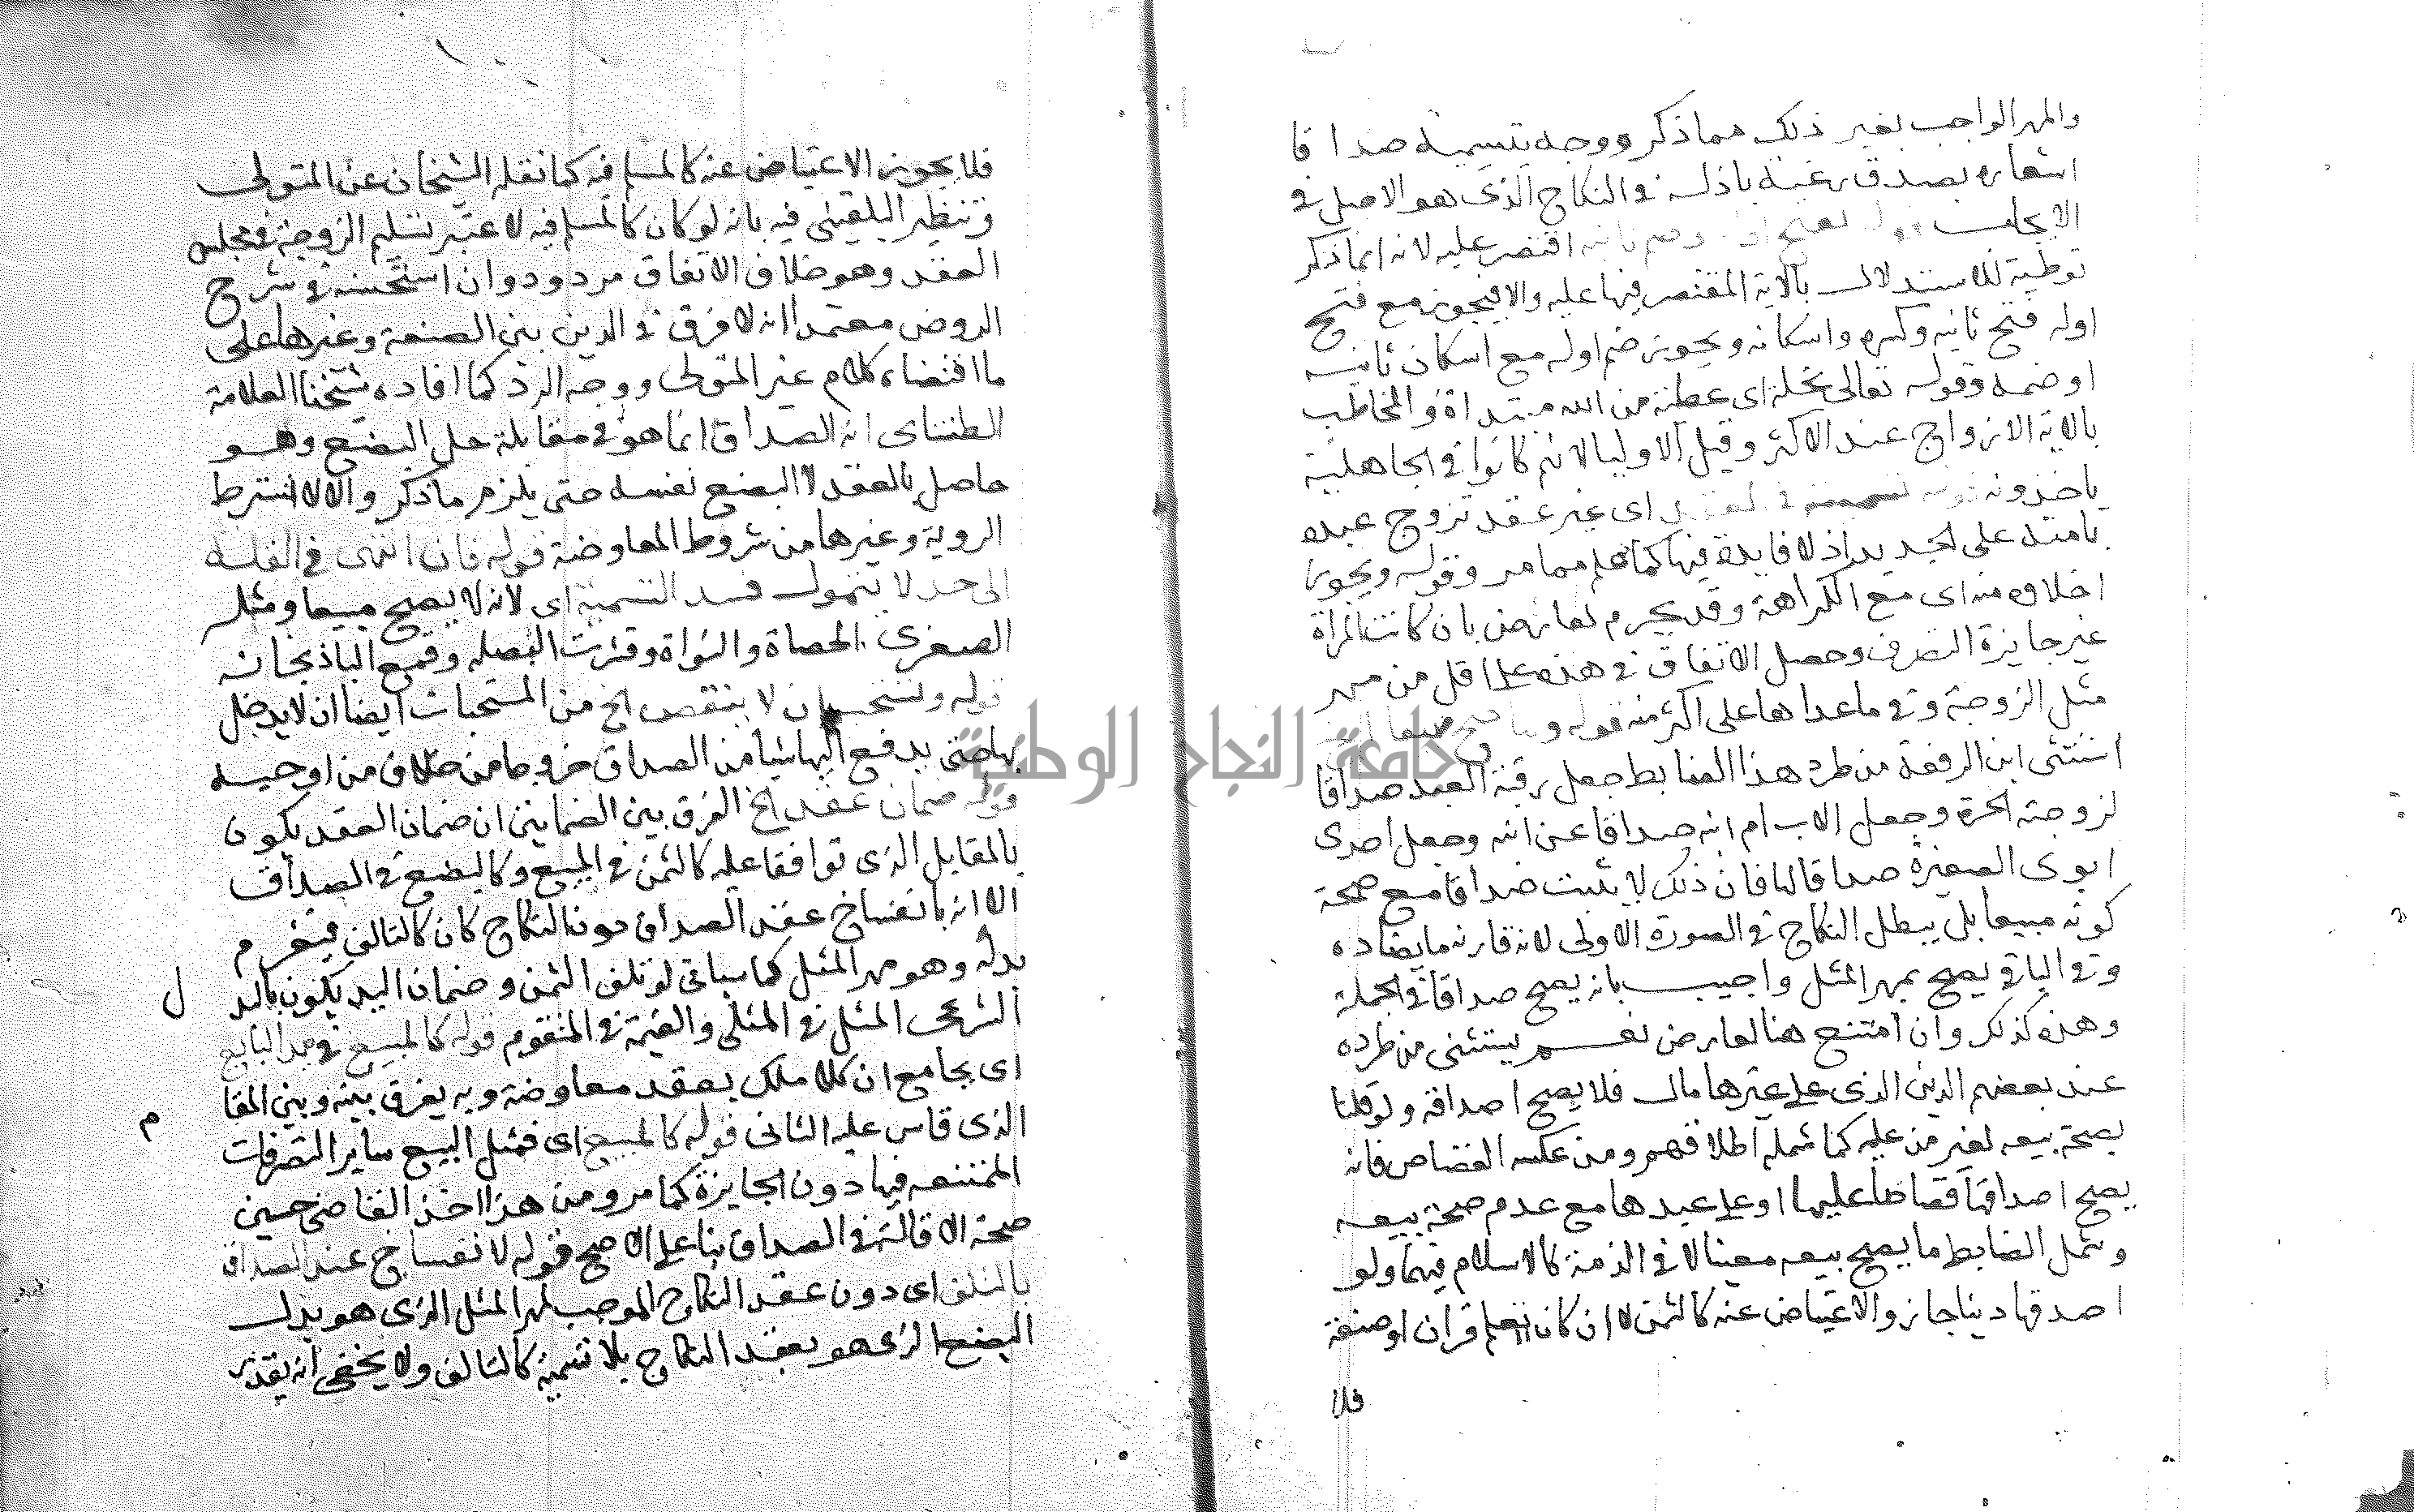 والمهر الواجب بغير ذلك مما ذكر ووجه تسميه صداقا
اشعاره بصدق رغبة باذله في النكاح الذي هو الاصل في
الايجاب اقتصر عليه لانه انما ذكر
توطية للاستدلال بالاية المقتصر فيها عليه والا فيجوز مع فتح
اوله فتح ثانيه وكسره واسكانه ويجوز ضم اوله مع اسكان ثانيه
او ضمه وقوله تعالى نحلة اي عطية من الله مبتداة والمخاطب
بالاية الازواج عند الاكثر وقيل الاوليا لانهم كانوا في الجاهلية
ياخذونه قوله تسميته في العقد اي غير عقد تزوج عبده
بامته على الجديد اذ لا فايدة فيها كما علم مما مر وقوله ويجوز
اخلاوه منه اي مع الكراهة وقد يحرم لعارض بان كانت المراة
غير جايزة التصرف وحصل الاتفاق في هذه على اقل من مهر
مثل الزوجة وفي ما عداها على اكثر منه قوله وما صح مبيعا
استثنى ابن الرفعة من طرد هذا الضابط جعل رقبة العبد صداقا
لزوجته الحرة وجعل الاب ام ابنه صداقا عن ابنه وجعل احدى
ابوي الصغيرة صداقا لها فان ذلك لا يثبت صداقا مع صحة
كونه مبيعا بل يبطل النكاح في الصورة الاولى لانه قارنه ما يضاده
وفي الباقي يصح بمهر المثل واجيب بانه يصح صداقا في الجملة
وهذه كذلك وان امتنع هنا لعارض نعم يستثنى من طرده
عند بعضهم الدين الذي على غيرها مال فلا يصح اصداقه ولو قلنا
بصحة بيعه لغير من عليه كما شمله اطلاقهم ومن عكسه القصاص فانه
يصح اصداقها قصاصا عليها او على عبدها مع عدم صحة بيعه
وشمل الضابط ما يصح بيعه معينا لا في الذمة كالاسلام فيهما ولو
اصدقها دينا جاز والاعتياض عنه كالثمن لا ان كان تعلم قران او صنعة
فلا
فلا يجوز الاعتياض عنه كالمسلم فيه كما نقله الشيخان عن المتولي
وتنظير البلقيني فيه بانه لو كان كالمسلم فيه لاعتبر تسليم الزوجة في مجلس
العقد وهو خلاف الاتفاق مردود وان استحسنه في شرح
الروض معتمدا انه لا فرق في الدين بين الصنعة وغيرها على
ما اقتضاه كلام غير المتولي ووجه الرد كما افاده شيخنا العلامة
الطنتناي ان الصداق انما هو في مقابلة حل البضع وهو
حاصل بالعقد لا البضع نفسه حتى يلزم ما ذكر والا لاشترط
الروية وغيرها من شروط المعاوضة قوله فان انتهى في القلة
الى حد لا يتمول فسد التسمية اي لانه لا يصح مبيعا ومثل
الصغرى الحصاة والنواة وقشرت البصله وقمع الباذنجانه
قوله ويستحب ان لا ينقص الخ من المستحبات ايضا ان لا يدخل
بها حتى يدفع اليها شيا من الصداق خروجا من خلاف من اوجبه
قوله ضمان عقد الخ الفرق بين الضمانين ان ضمان العقد يكون
بالمقابل الذي توافقا عليه كالثمن في المبيع وكالبضع في الصداق
الا انه بانفساخ عقد الصداق دون النكاح كان كالتالف فيغرم
بدله وهو مهر المثل كما سياتي لو تلف الثمن وضمان اليد يكون بالبد
ل
الشرعي المثل في المثلي والقيمة في المتقوم قوله كالمبيع في يد البايع
اي بجامع ان كلا ملك بعقد معاوضة وبه يفرق بينه وبين المقا
م
الذي قاس عليه الثاني قوله كالمبيع اي فمثل البيع ساير التصرفات
الممتنعه فيها دون الجايزة كما مر ومن هذا اخذ القاضي حسين
صحة الاقالة في الصداق بنا على الاصح قوله لانفساخ عقد الصداق
بالتلف اي دون عقد النكاح الموجب لمهر المثل الذي هو بدل
البضع الذي هو بعقد النكاح بلا تسمية كالتالف ولا يخفى انه يقدر
جامعة النجاح الوطنية